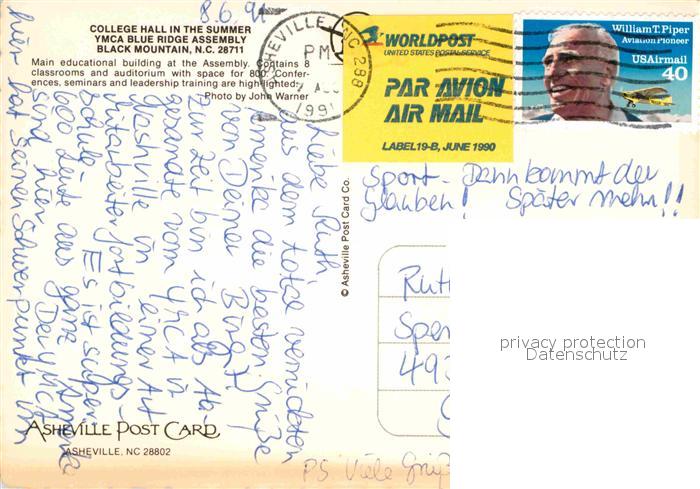 8.6.91
COLLEGE HALL IN THE SUMMER
YMCA BLUE RIDGE ASSEMBLY
BLACK MOUNTAIN, N.C. 28711
Main educational building at the Assembly. Contains 8
classrooms and auditorium with space for 800. Confer-
ences, seminars and leadership training are high-lighted.
Photo by John Warner
ASHEVILLE NC 288
PM
AUG
1991
WORLDPOST
UNITED STATES POSTAL SERVICE
PAR AVION
AIR MAIL
LABEL 19-B, JUNE 1990
William T. Piper
Aviation Pioneer
USAirmail
40
Liebe Ruth,
aus dem total verrückten
Amerika die besten Grüße
von Deiner Birgit
Zur Zeit bin ich als Ab-
gesandte vom YMCA in
Ashville in einer Art
Mitarbeiterfortbildungs-
schule. Es ist super.
600 Leute aus ganz Amerika
sind hier. Der YMCA
hier hat seinen Schwerpunkt im
Sport. Dann kommt der
Glauben! Später mehr!!
© Asheville Post Card Co.
Rut
Spe
49
privacy protection
Datenschutz
ASHEVILLE POST CARD
ASHEVILLE, NC 28802
PS Viele Grüß